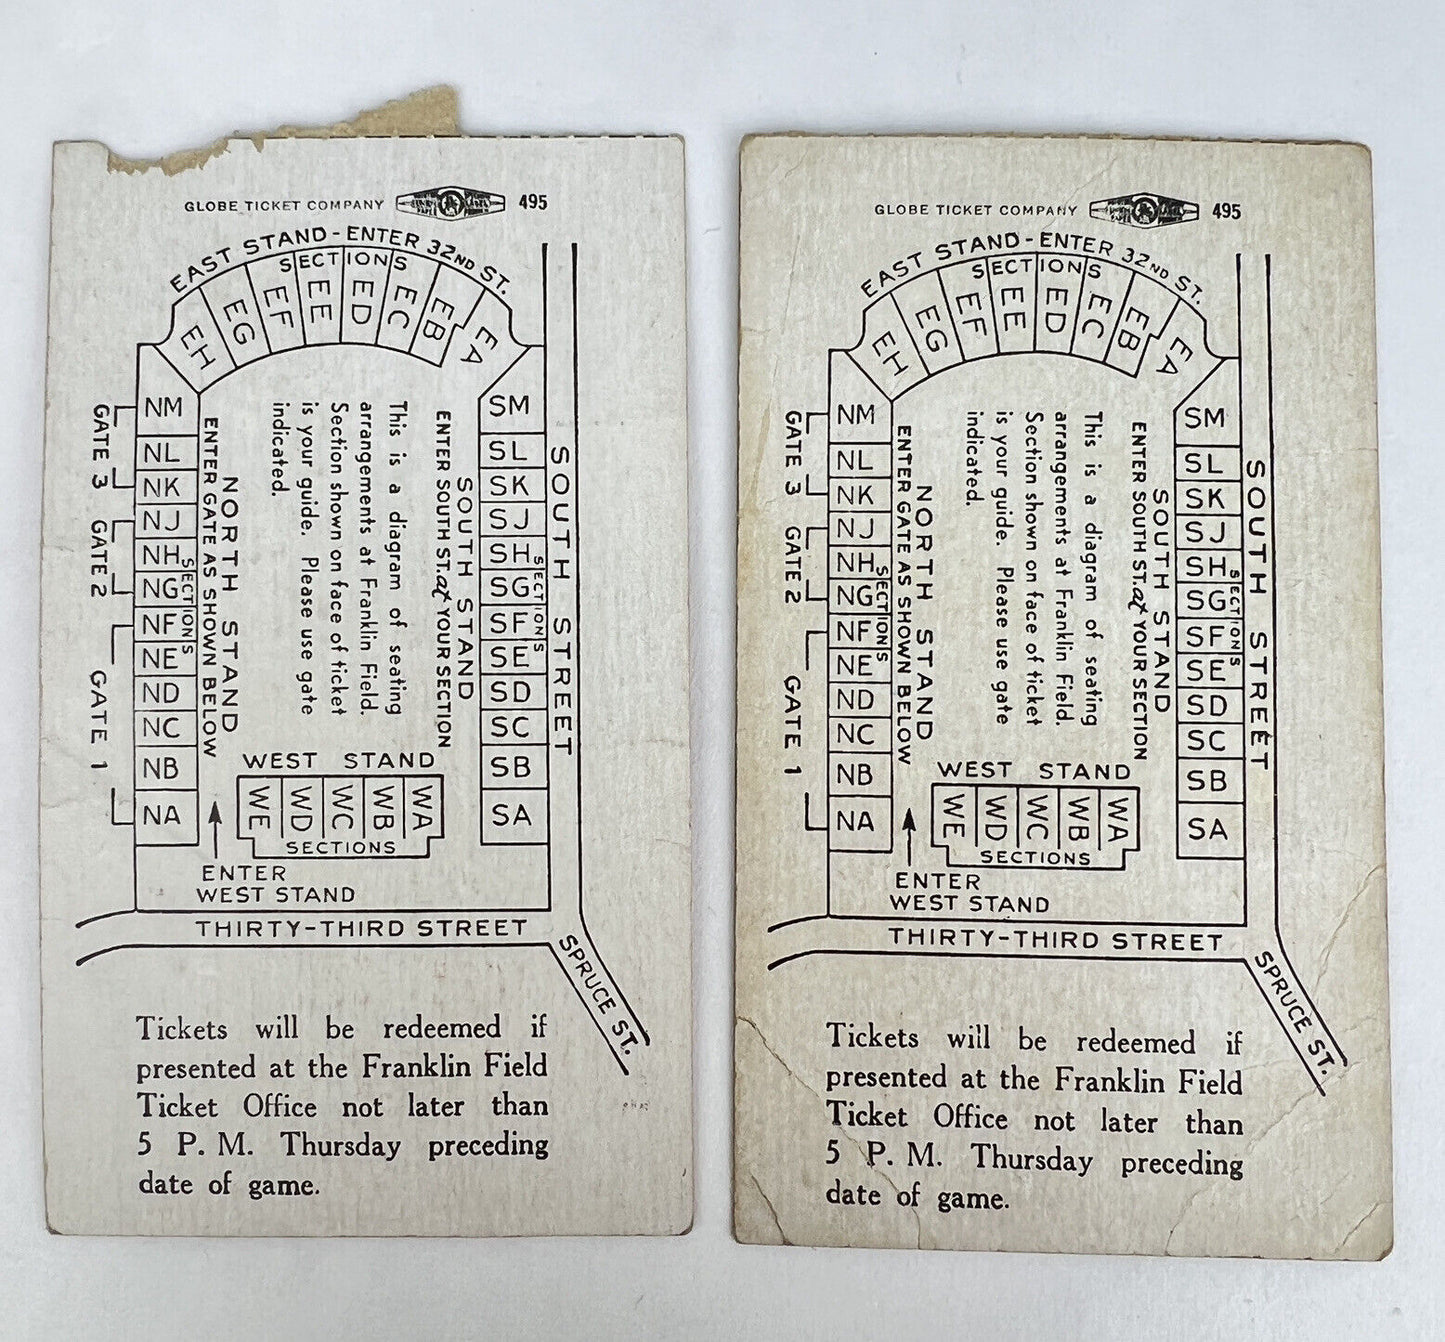 GLOBE TICKET COMPANY 495
EAST STAND - ENTER 32ND ST.
SECTIONS
EH EG EF EE ED EC EB EA
NM
NL
NK
NJ
NH
NG
NF
NE
ND
NC
NB
NA
SECTIONS
GATE 3
GATE 2
GATE 1
NORTH STAND
ENTER GATE AS SHOWN BELOW
This is a diagram of seating
arrangements at Franklin Field.
Section shown on face of ticket
is your guide. Please use gate
indicated.
SOUTH STAND
ENTER SOUTH ST. at YOUR SECTION
SM
SL
SK
SJ
SH
SG
SF
SE
SD
SC
SB
SA
SECTIONS
SOUTH STREET
WEST STAND
WE WD WC WB WA
SECTIONS
ENTER
WEST STAND
THIRTY-THIRD STREET
SPRUCE ST.
Tickets will be redeemed if
presented at the Franklin Field
Ticket Office not later than
5 P. M. Thursday preceding
date of game.
GLOBE TICKET COMPANY 495
EAST STAND - ENTER 32ND ST.
SECTIONS
EH EG EF EE ED EC EB EA
NM
NL
NK
NJ
NH
NG
NF
NE
ND
NC
NB
NA
SECTIONS
GATE 3
GATE 2
GATE 1
NORTH STAND
ENTER GATE AS SHOWN BELOW
This is a diagram of seating
arrangements at Franklin Field.
Section shown on face of ticket
is your guide. Please use gate
indicated.
SOUTH STAND
ENTER SOUTH ST. at YOUR SECTION
SM
SL
SK
SJ
SH
SG
SF
SE
SD
SC
SB
SA
SECTIONS
SOUTH STREET
WEST STAND
WE WD WC WB WA
SECTIONS
ENTER
WEST STAND
THIRTY-THIRD STREET
SPRUCE ST.
Tickets will be redeemed if
presented at the Franklin Field
Ticket Office not later than
5 P. M. Thursday preceding
date of game.